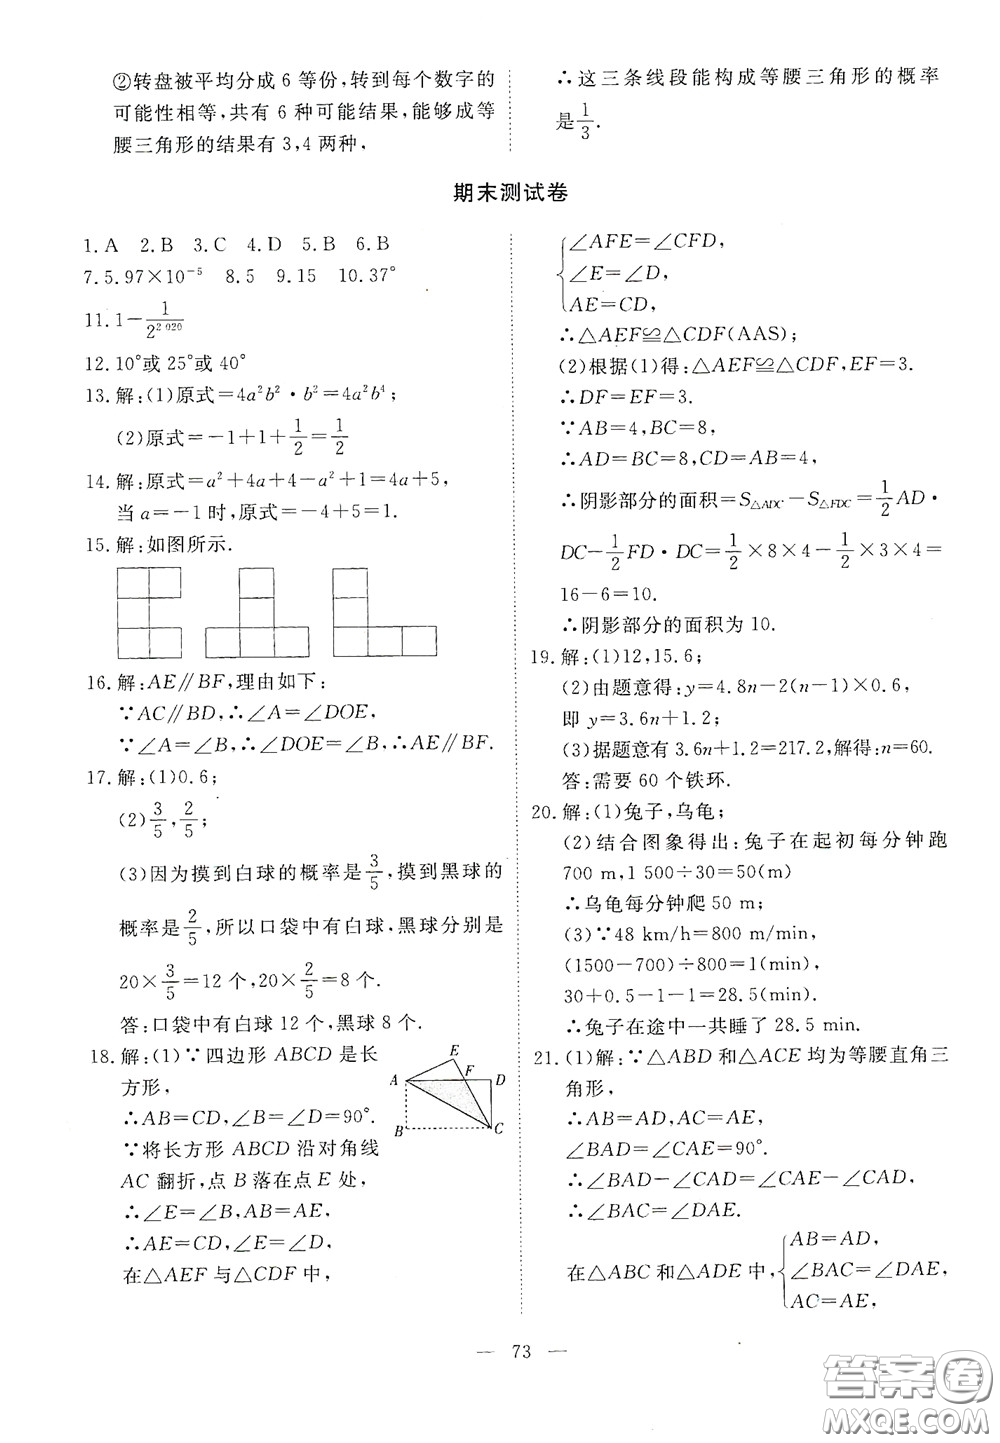 ②转盘被平均分成 6 等份,转到每个数字的
可能性相等,共有 6 种可能结果,能够成等
腰三角形的结果有 3,4 两种,
∴这三条线段能构成等腰三角形的概率
是1/3.
期末测试卷
1. A 2. B 3. C 4. D 5. B 6. B
7. 5.97×10⁻⁵ 8. 5 9. 15 10. 37°
11. 1−1/2^(2 020)
12. 10°或 25°或 40°
13. 解:(1)原式=4a²b²·b²=4a²b⁴;
(2)原式=−1+1+1/2=1/2
14. 解:原式=a²+4a+4−a²+1=4a+5,
当 a=−1 时,原式=−4+5=1.
15. 解:如图所示.
16. 解:AE∥BF,理由如下:
∵AC∥BD,∴∠A=∠DOE,
∵∠A=∠B,∴∠DOE=∠B,∴AE∥BF.
17. 解:(1)0.6;
(2)3/5,2/5;
(3)因为摸到白球的概率是3/5,摸到黑球的
概率是2/5,所以口袋中有白球、黑球分别是
20×3/5=12 个,20×2/5=8 个.
答:口袋中有白球 12 个,黑球 8 个.
18. 解:(1)∵四边形 ABCD 是长
方形,
∴AB=CD,∠B=∠D=90°.
∵将长方形 ABCD 沿对角线
AC 翻折,点 B 落在点 E 处,
∴∠E=∠B,AB=AE,
∴AE=CD,∠E=∠D,
在△AEF 与△CDF 中,
E
F
A
D
B
C
∠AFE=∠CFD,
∠E=∠D,
AE=CD,
∴△AEF≌△CDF(AAS);
(2)根据(1)得:△AEF≌△CDF,EF=3.
∴DF=EF=3.
∵AB=4,BC=8,
∴AD=BC=8,CD=AB=4,
∴阴影部分的面积=S△ADC−S△FDC=1/2AD·
DC−1/2FD·DC=1/2×8×4−1/2×3×4=
16−6=10.
∴阴影部分的面积为 10.
19. 解:(1)12,15.6;
(2)由题意得:y=4.8n−2(n−1)×0.6,
即 y=3.6n+1.2;
(3)据题意有 3.6n+1.2=217.2,解得:n=60.
答:需要 60 个铁环.
20. 解:(1)兔子,乌龟;
(2)结合图象得出:兔子在起初每分钟跑
700 m,1 500÷30=50(m)
∴乌龟每分钟爬 50 m;
(3)∵48 km/h=800 m/min,
(1500−700)÷800=1(min)
30+0.5−1−1=28.5(min).
∴兔子在途中一共睡了 28.5 min.
21. (1)解:∵△ABD 和△ACE 均为等腰直角三
角形,
∴AB=AD,AC=AE,
∠BAD=∠CAE=90°.
∴∠BAD−∠CAD=∠CAE−∠CAD,
∴∠BAC=∠DAE.
AB=AD,
在△ABC 和△ADE 中,∠BAC=∠DAE,
AC=AE,
— 73 —
答案圈
MXQE.COM